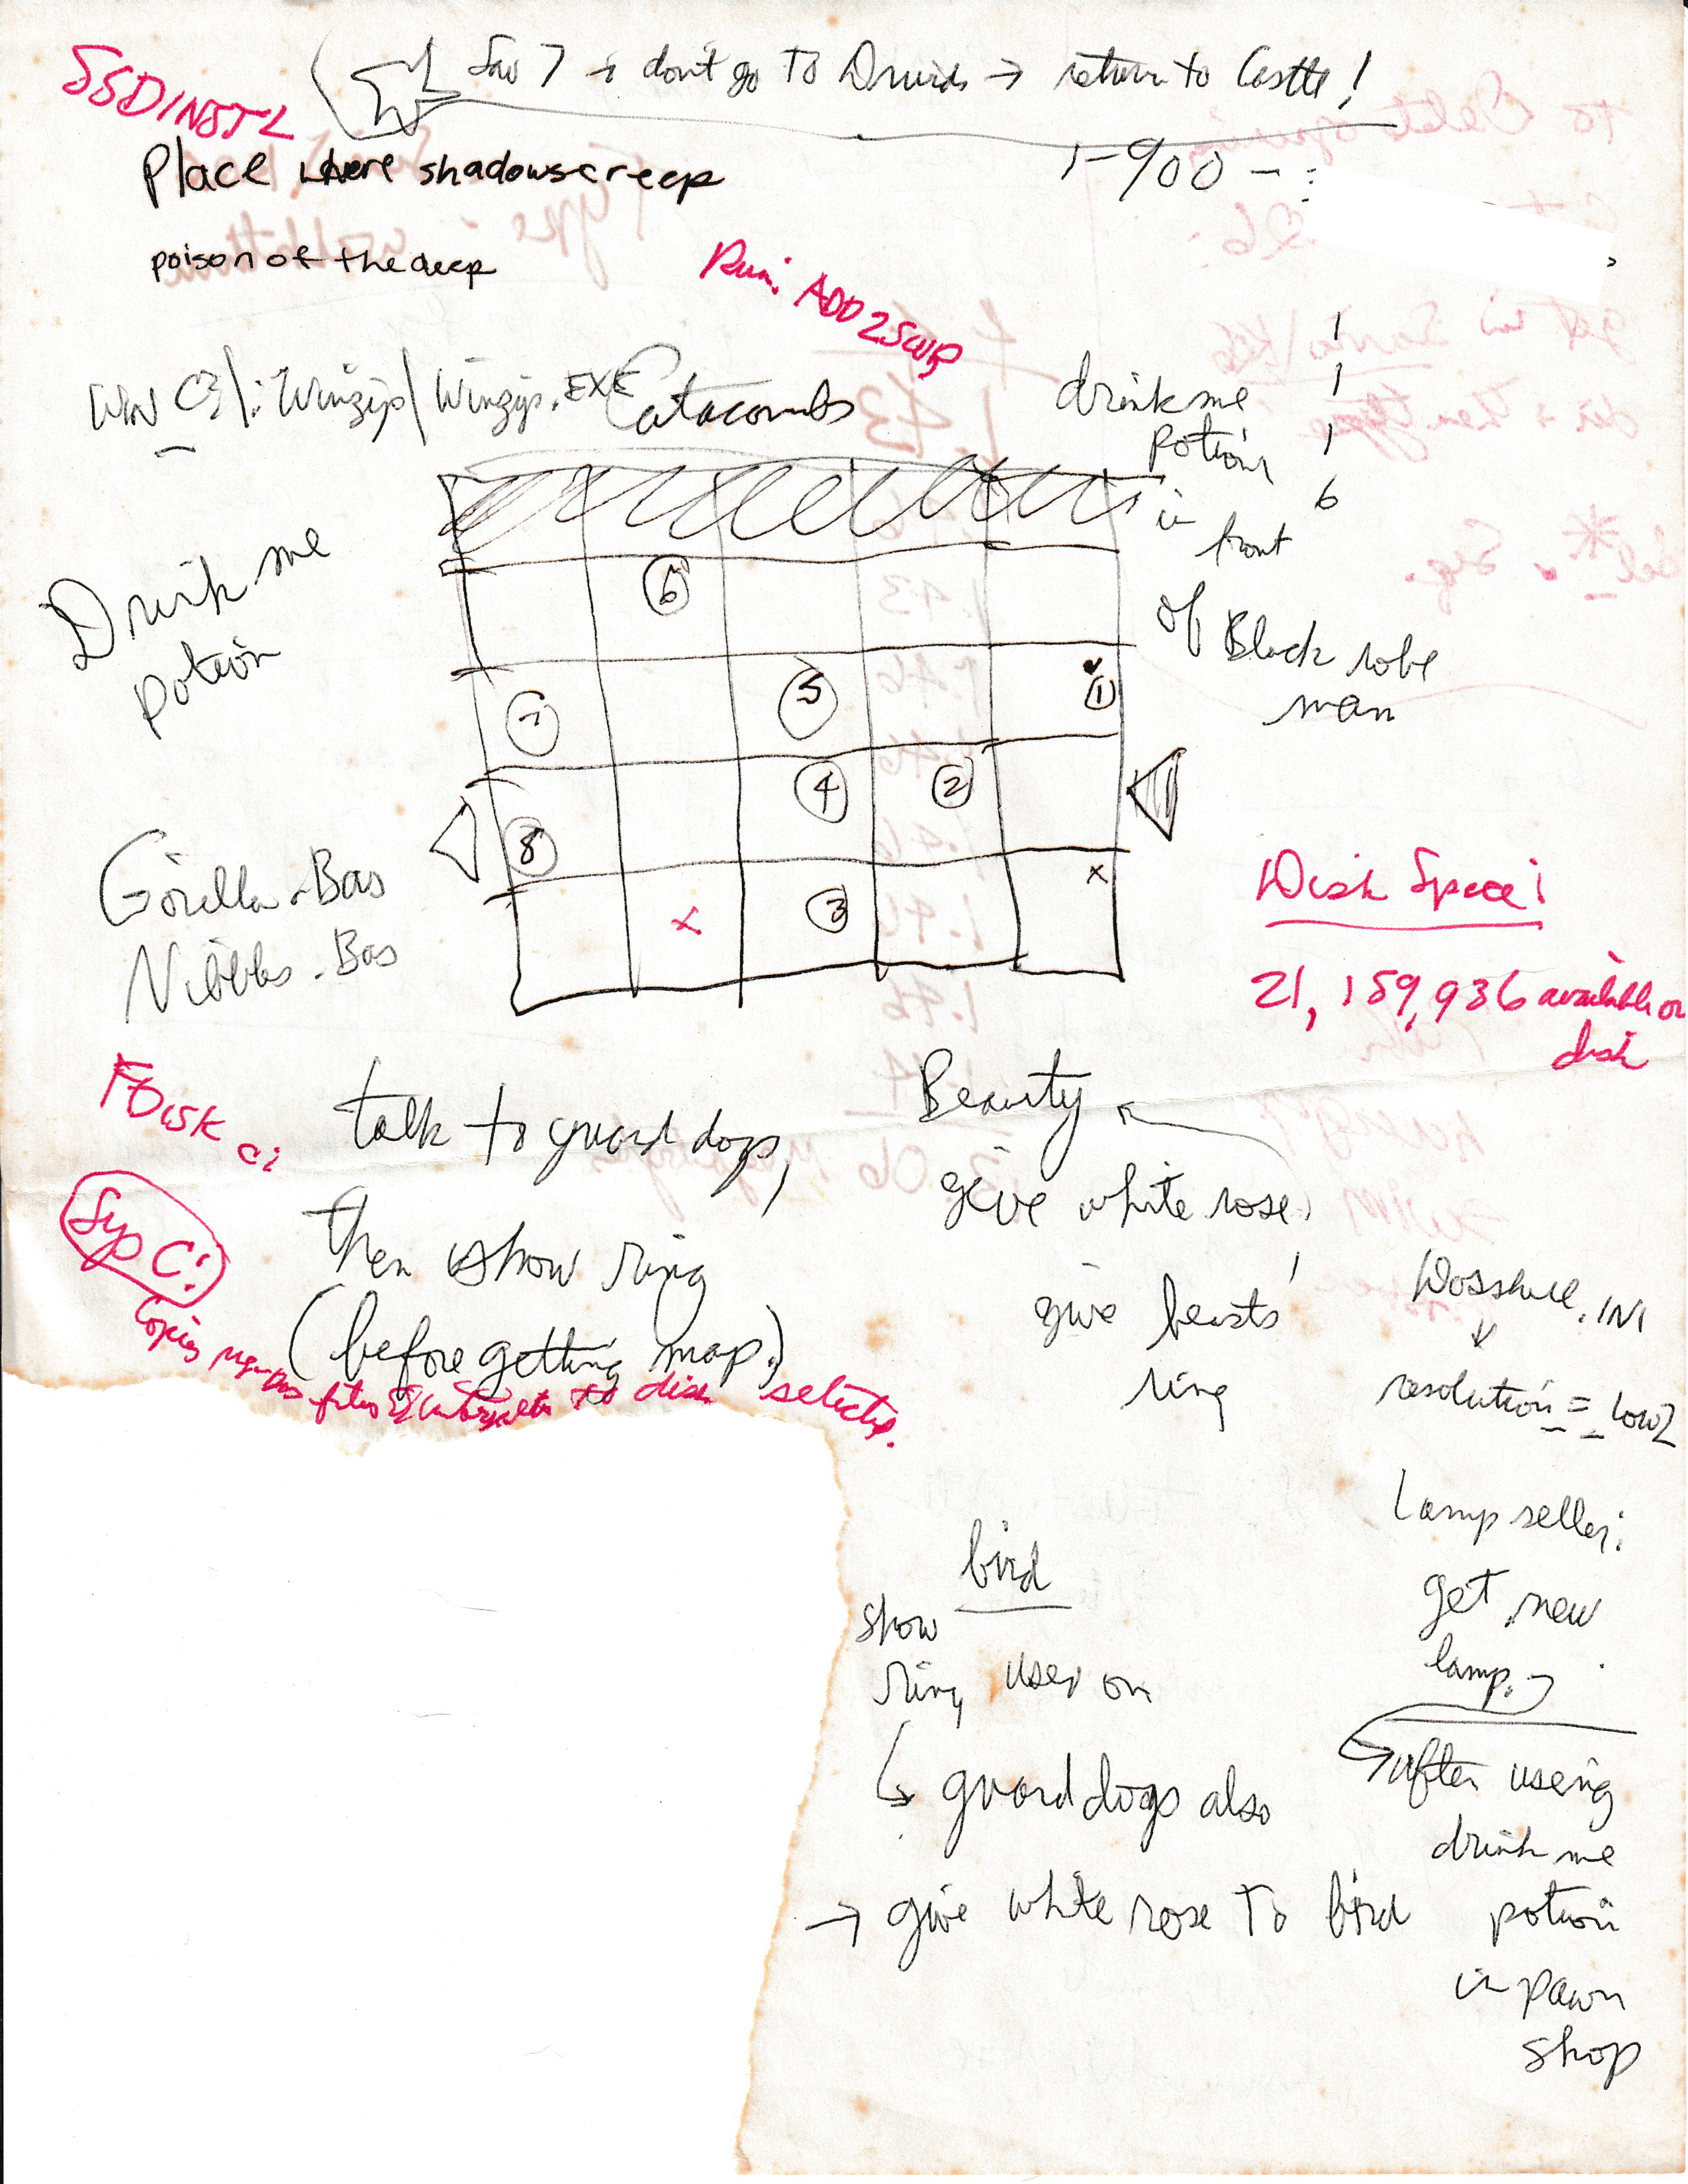 SSDINSTL
Sav 7 → don't go to Druids → return to Castle!
Place where shadows creep
1-900 -
poison of the deep
Run: ADD2SWP
WIN C:\:Winzip\Winzip.EXE
Catacombs
drink me
potion
in
front
of Black robe
man
1
1
1
6
Drink me
potion
6
7
5
1
4
2
8
x
x
3
Gorilla.Bas
Nibbles.Bas
Disk Space!
21,159,936 available on
disk
FDISK C:
Sys C:
talk to guard dogs,
then show ring
(before getting map.)
Beauty
give white rose,
give beasts
ring
Dosshell.INI
resolution = low2
Copies files & to disk selected.
Lamp seller:
get new
lamp.
after using
drink me
potion
in pawn
shop
bird
show
ring used on
guard dogs also
→ give white rose to bird